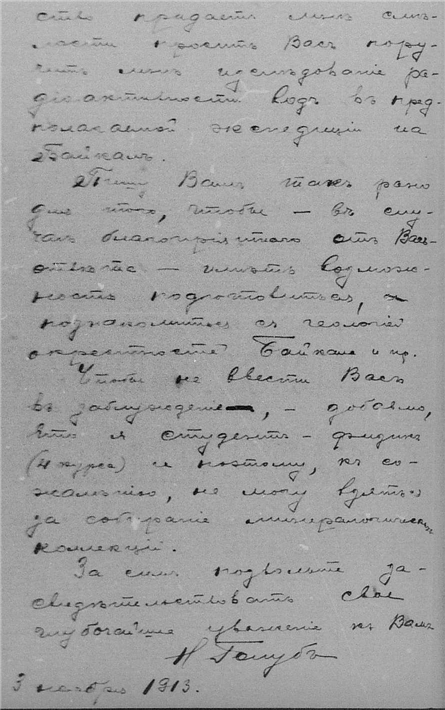 ство придаетъ мнѣ смѣ-
лости просить Васъ пору-
чить мнѣ изслѣдованіе ра-
діоактивности водъ въ пред-
полагаемой экспедиціи на
Байкалъ.
Пишу Вамъ такъ рано
для того, чтобы – въ слу-
чаѣ благопріятнаго отъ Васъ
отвѣта – имѣть возмож-
ность подготовиться,
познакомиться съ геологіей
окрестностей Байкала и пр.
Чтобы не ввести Васъ
въ заблужденіе, – добавлю,
что я студентъ – физикъ
(4 курса) и поэтому, къ со-
жалѣнію, не могу взяться
за собираніе минералогическихъ
коллекцій.
За симъ позвольте за-
свидѣтельствовать свое
глубочайшее уваженіе къ Вамъ
Н Голубъ
3 ноября 1913.